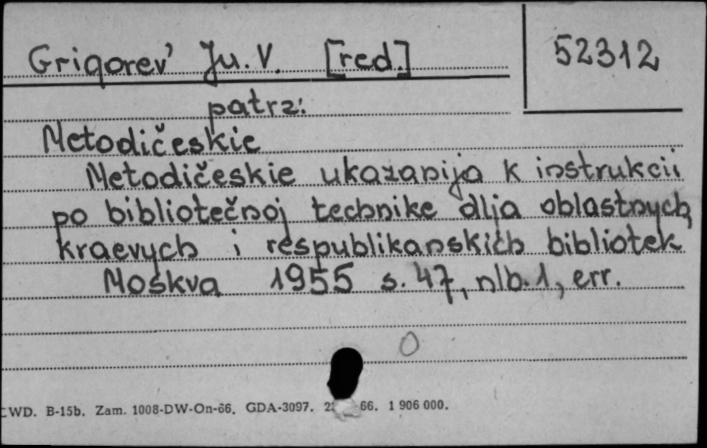 Grigorev' Ju. V. [red.]
52312
patrz:
Metodičeskie
Metodičeskie ukazanija k instrukcii
po bibliotečnoj technike dlja oblastnych,
kraevych i respublikanskich bibliotek
Moskva 1955 s. 47, nlb. 1, err.
0
LWD. B-15b. Zam. 1008-DW-On-66. GDA-3097. 66. 1 906 000.